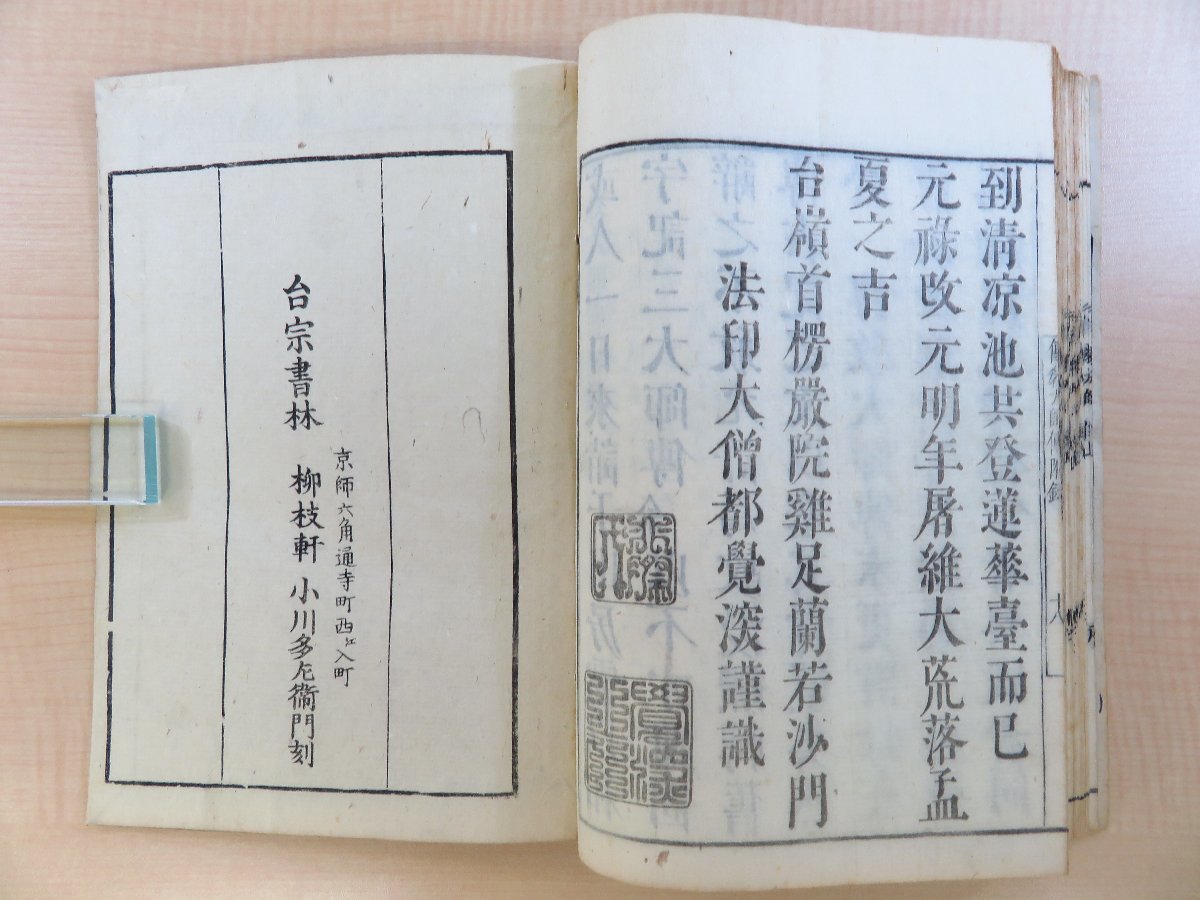 到清凉池共登蓮華臺而巳
元祿改元明年屠維大荒落孟
夏之吉
台嶺首楞嚴院雞足蘭若沙門
法印大僧都覺深謹識
京師六角通寺町西江入町
台宗書林 柳枝軒 小川多左衞門刻